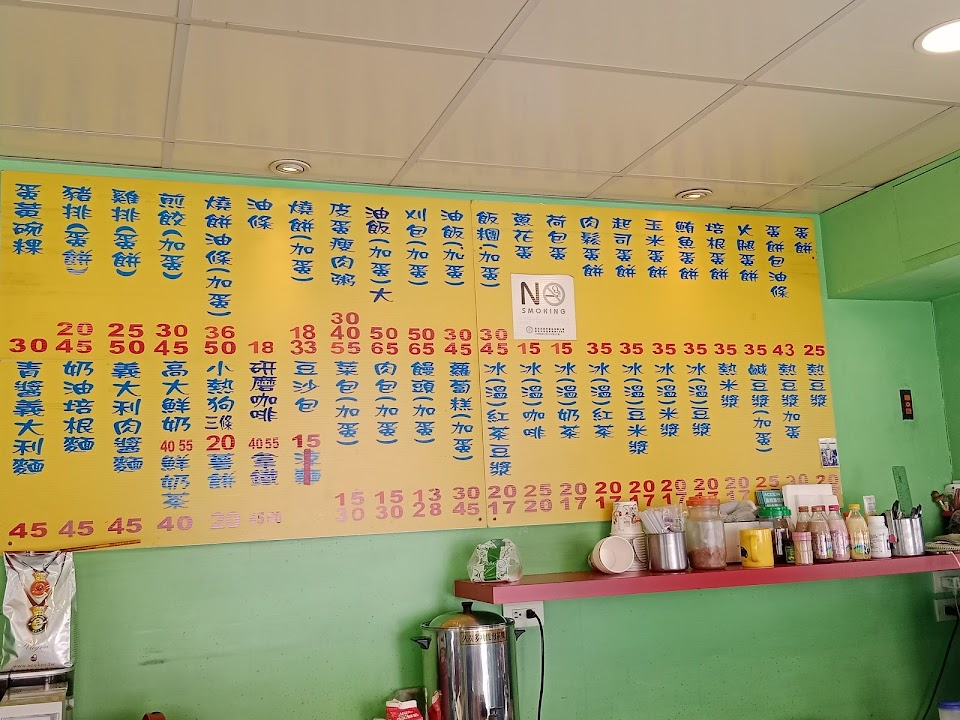 蛋餅 25
蛋餅包油條 43
火腿蛋餅 35
培根蛋餅 35
鮪魚蛋餅 35
玉米蛋餅 35
起司蛋餅 35
肉鬆蛋餅 35
荷包蛋 15
蔥花蛋 15
飯糰(加蛋) 30 45
油飯(加蛋) 30 45
刈包(加蛋) 50 65
油飯(加蛋)大 50 65
皮蛋瘦肉粥 30 40 55
燒餅(加蛋) 18 33
油條 18
燒餅油條(加蛋) 36 50
煎餃(加蛋) 30 45
雞排(蛋餅) 25 50
豬排(蛋餅) 20 45
蛋黃碗粿 30
熱豆漿 20
熱豆漿加蛋 30
鹹豆漿(加蛋) 25
熱米漿 20
冰(溫)豆漿 20 17
冰(溫)米漿 20 17
冰(溫)豆米漿 20 17
冰(溫)紅茶 20 17
冰(溫)奶茶 20 17
冰(溫)咖啡 25 20
冰(溫)紅茶豆漿 20 17
蘿蔔糕(加蛋) 30 45
饅頭(加蛋) 13 28
肉包(加蛋) 15 30
菜包(加蛋) 15 30
豆沙包 15
研磨咖啡 40 55
拿鐵
小熱狗三條 20
薯餅 20
高大鮮奶 40 55
鮮奶茶 40
義大利肉醬麵 45
奶油培根麵 45
青醬義大利麵 45
NO
SMOKING